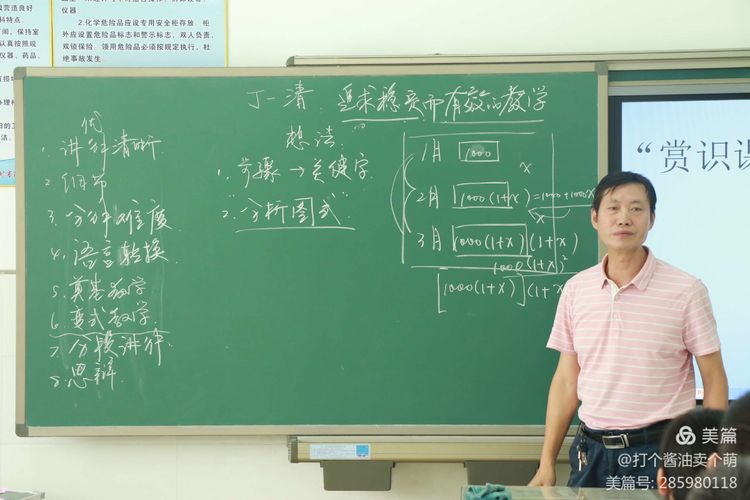 仪器
2.化学危险品应设专用安全柜存放，柜
外应设置危险品标志和警示标志，双人负责，
双锁保险。领用危险品必须按规定执行，杜
绝事故发生。
丁一清 追求稳实而有效的教学
优
1. 讲解清晰
2. 细节
3. 分解难度
4. 语言转换
5. 奠基教学
6. 变式教学
7. 分段讲解
8. 思辩
想法:
1. 步骤→关键字
2. "分析图式"
1月 1000
x
2月 1000(1+x)=1000+1000x
x
3月 1000(1+x)(1+x)
1000(1+x)²
[1000(1+x)](1+x
"赏识课
美篇
@打个酱油卖个萌
美篇号: 285980118